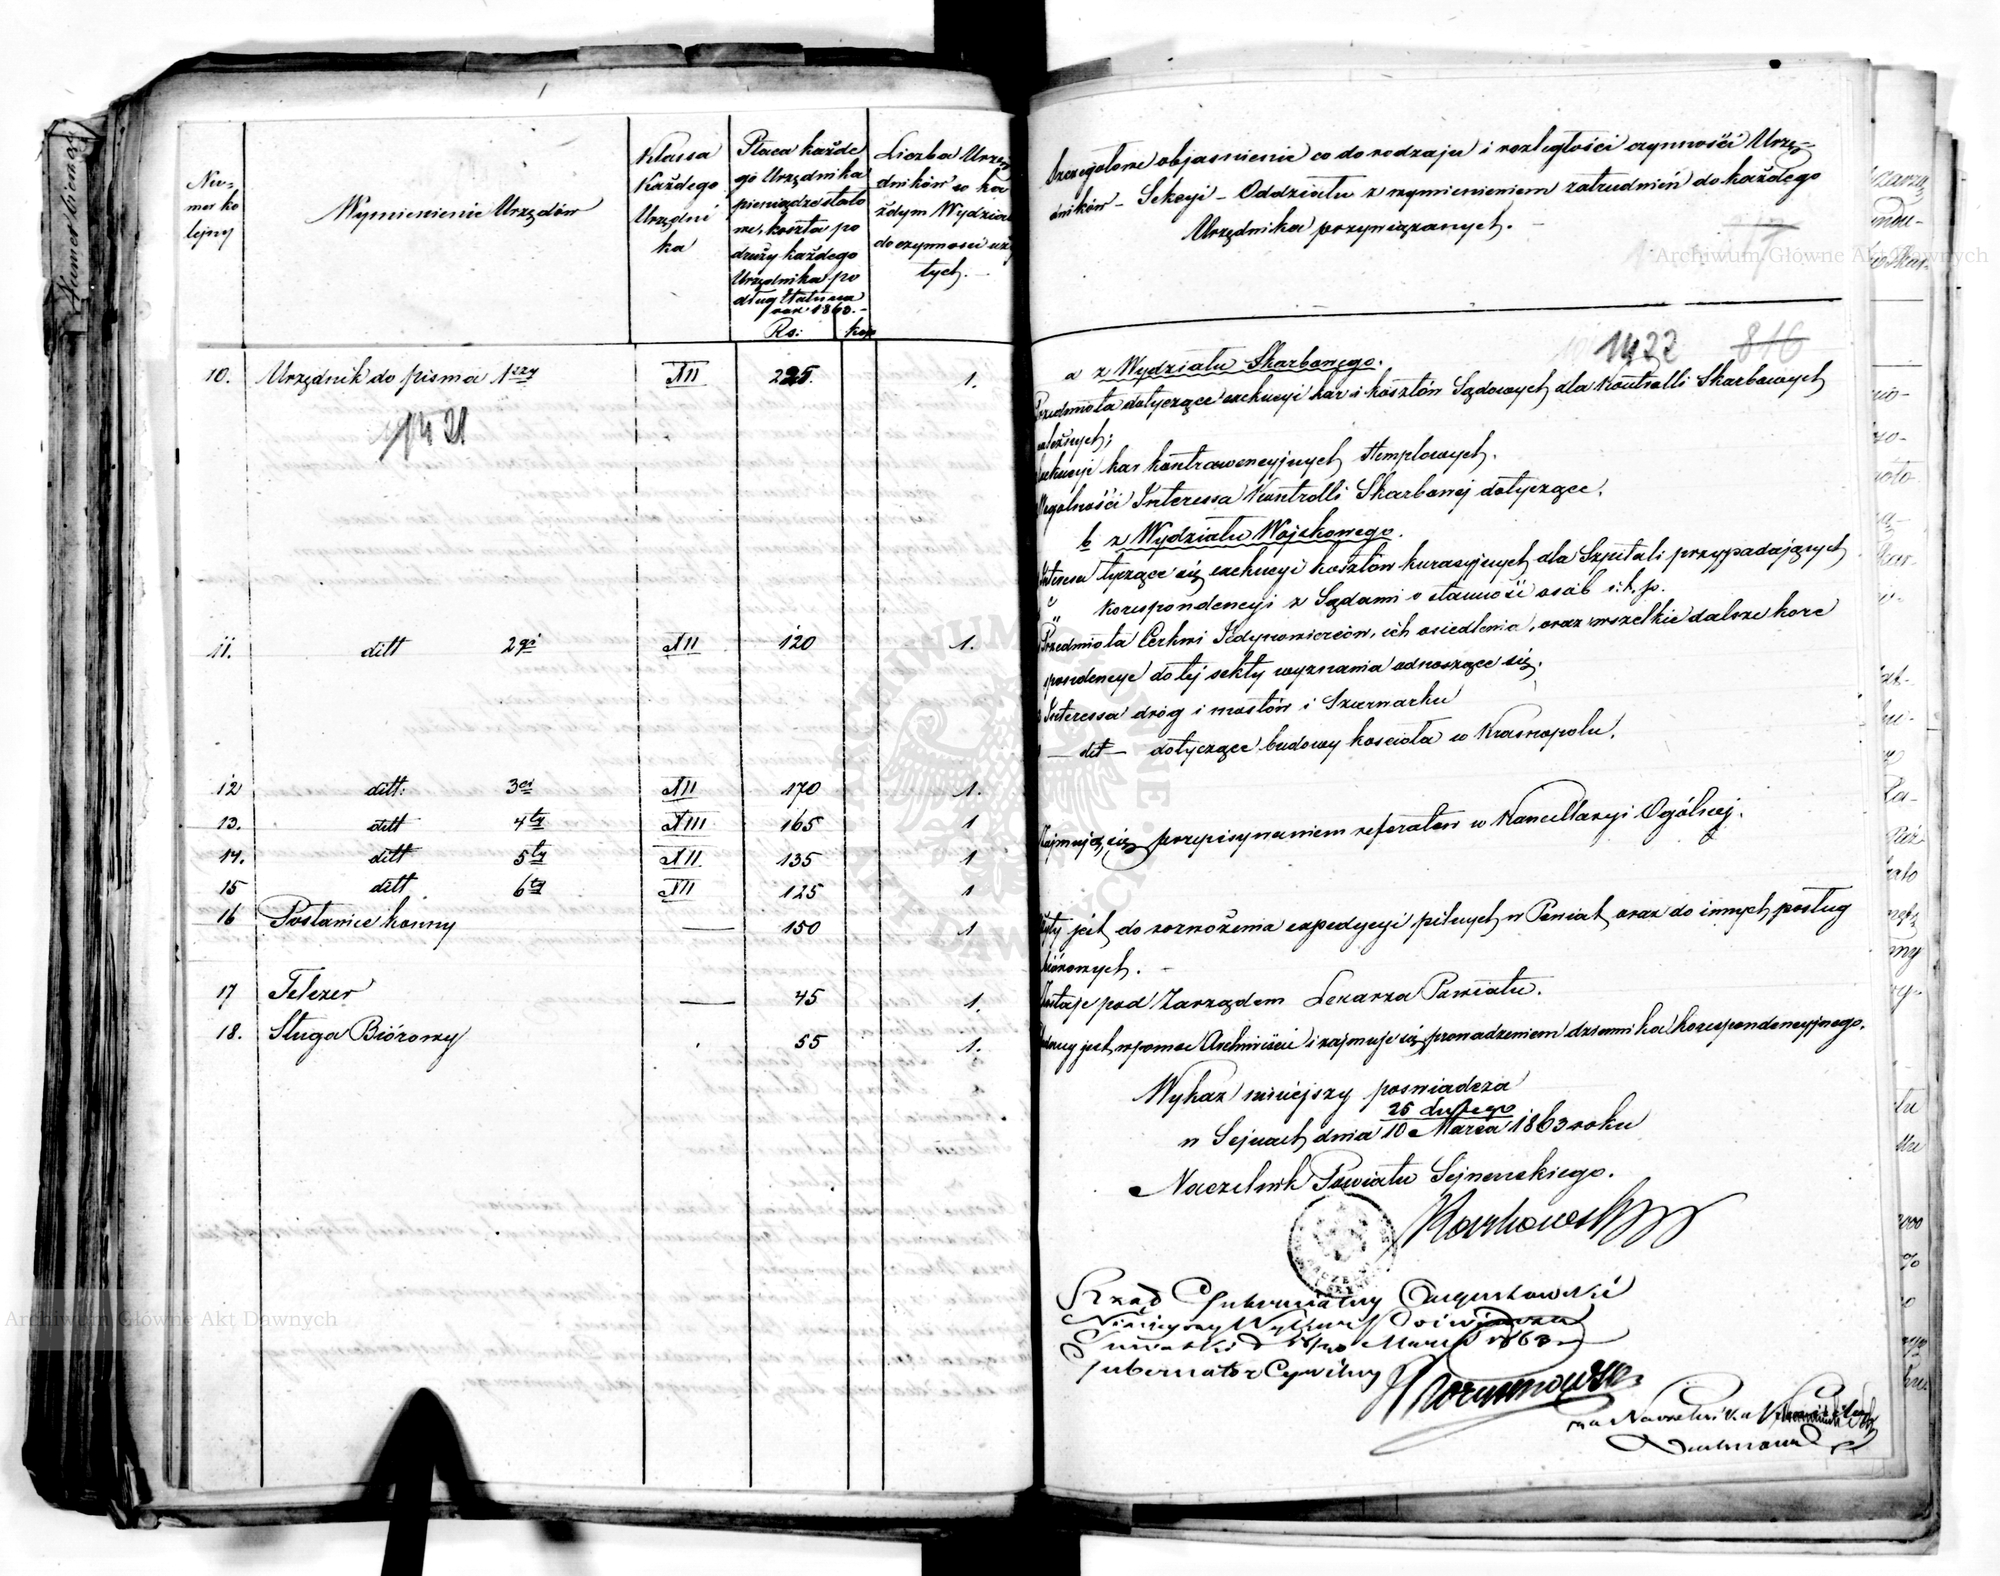 Nu-
mer ko
lejny
Wymienienie Urzędów
Klassa
Każdego
Urzędni
ka
Płaca każde
go Urzędnika
pieniądze stoło
we, koszta po
dróży każdego
Urzędnika po
dług Etatu na
rok 1860.-
Rs: kop
Liczba Urzę
dników w ka
żdym Wydzia
do czynności uży
tych.
10. Urzędnik do pisma 1szy XII 225. 1.
1421
11. ditt 2gi XII 120 1.
12 ditt: 3ci XII 170 1.
13. ditt 4ty XIII 165 1
14. ditt 5ty XII 135 1
15 ditt 6ty XII 125 1
16 Posłaniec konny — 150 1
17 Felczer — 45 1.
18. Sługa Biórowy 55 1.
Szczegółowe objaśnienie co do rodzaju i rozległości czynności Urzę-
dników - Sekcyi - Oddziału z wymienieniem zatrudnień do każdego
Urzędnika przywiązanych.
1422 816
a z Wydziału Skarbowego.
Przedmiota dotyczące exekucyi kar i kosztów Sądowych dla Kontrolli Skarbowych
należnych;
exekucyi kar kontrawencyjnych stemplowych.
Wogólności Interessa Kontrolli Skarbowej dotyczące.
b z Wydziału Wojskowego.
Interesa tyczące się exekucyi kosztów kuracyjnych dla Szpitali przypadających
korespondencyi z Sądami o stawność osób i.t.p.
Przedmiota Cerkwi Jedynowierców, ich osiedlenia, oraz wszelkie dalsze kore
spondencye do tej sekty wyznania odnoszące się.
Interessa dróg i mostów i Szarwarku
— dit — dotyczące budowy kościoła w Krasnopolu.
Zajmują się przepisywaniem referatów w Kancellaryi Ogólnej.
Użyty jest do roznoszenia expedycyi pilnych w Powiat, oraz do innych posług
biórowych.
Zostaje pod Zarządem Lekarza Powiatu.
jest w pomoc Archiwiście i zajmuje się prowadzeniem dziennika korespondencyjnego.
Wykaz niniejszy poświadcza
w Sejnach dnia 25 Lutego
10 Marca 1863 roku
Naczelnik Powiatu Sejneńskiego.
Rząd Gubernialny Augustowski
Niniejszy Wykaz
Suwałki d Marca 1863
Gubernator Cywilny
za Naczelnika
Archiwum Główne Akt Dawnych
Archiwum Główne Akt Dawnych
ARCHIWUM GŁÓWNE AKT DAWNYCH